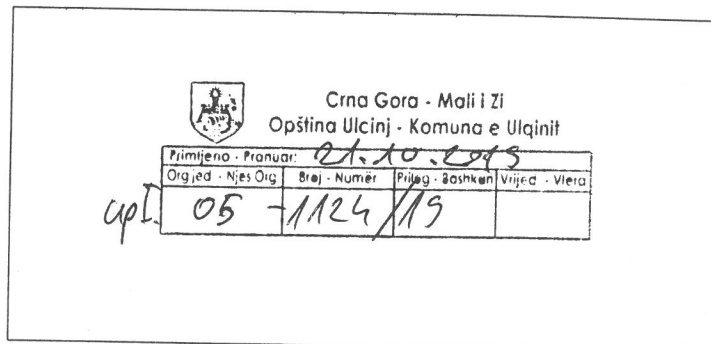 Crna Gora - Mali i Zi
Opština Ulcinj - Komuna e Ulqinit
Primljeno - Pranuar: 21.10.2019
Org jed - Njes Org Broj - Numër Prilog - Bashkan Vrijed - Vlera
05 - 1124/19